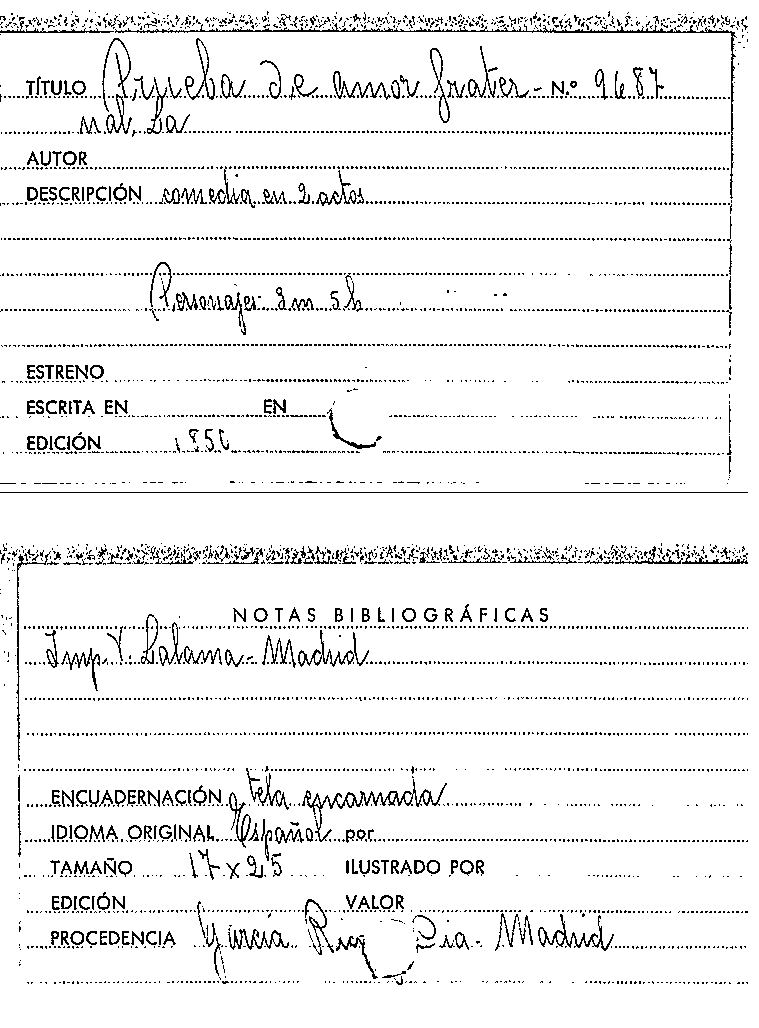 TÍTULO Prueba de amor frater- N.º 9687
nal, La
AUTOR
DESCRIPCIÓN comedia en 2 actos
Personajes: 3 m 5 h
ESTRENO
ESCRITA EN EN
EDICIÓN 1850
NOTAS BIBLIOGRÁFICAS
Imp. V. Lalama - Madrid
ENCUADERNACIÓN tela encarnada
IDIOMA ORIGINAL Español por
TAMAÑO 17 x 25 ILUSTRADO POR
EDICIÓN VALOR
PROCEDENCIA García Rico Cia. Madrid